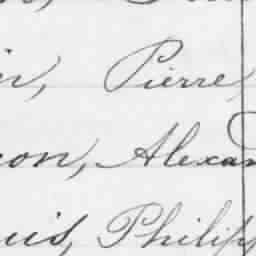 in, Pierre
on, Alexan
uis, Philipp